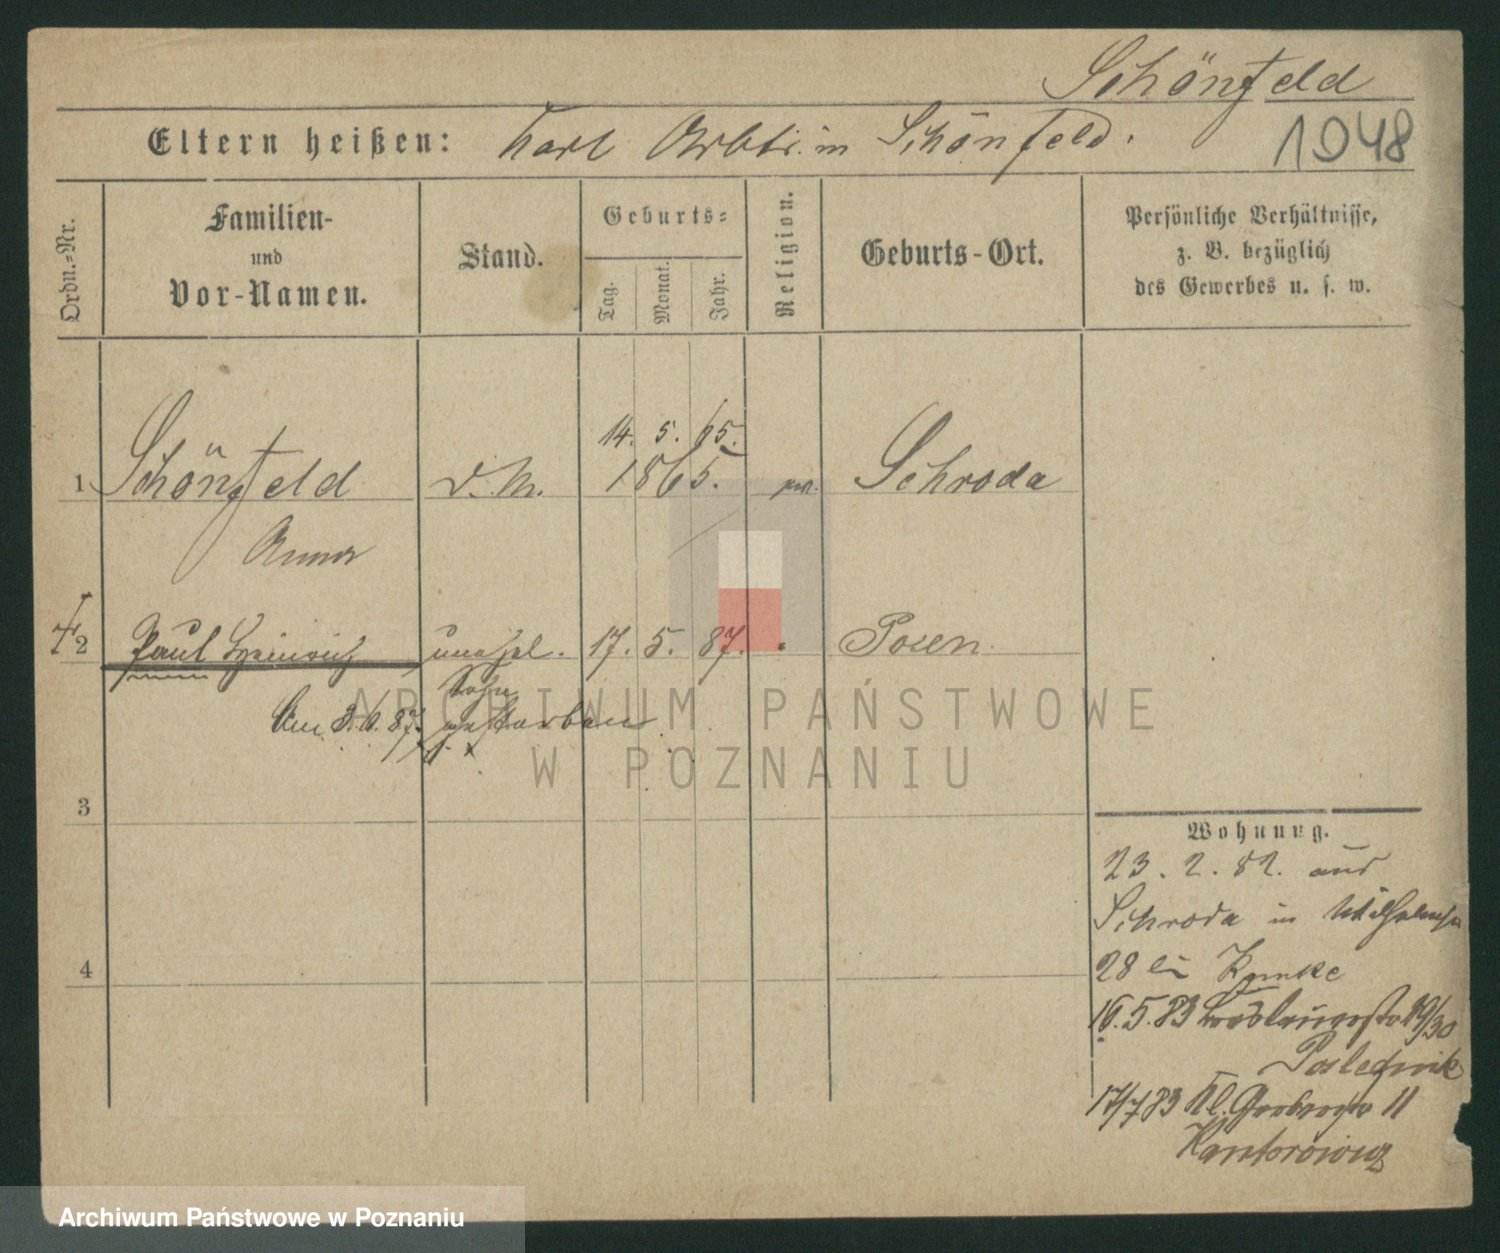 Schönfeld
Eltern heißen: Karl Arbtr. in Schönfeld.
1948
Ordn.-Nr.
Familien-
und
Vor-Namen.
Stand.
Geburts-
Tag.
Monat.
Jahr.
Religion.
Geburts-Ort.
Persönliche Verhältnisse,
z. B. bezüglich
des Gewerbes u. s. w.
14. 5. 65.
1 Schönfeld d. M. 1865. Schroda
Anna
2 Paul Heinrich unehel. 17. 5. 87. " Posen
Sohn
am 3. 87. gestorben
3
Wohnung.
23. 2. 82. aus
Schroda in Wilhelmstr
4
28 bei
16.5.83 19/30
17/7 83 Kl. Gerberstr 11
Kantorowicz
ARCHIWUM PAŃSTWOWE
W POZNANIU
Archiwum Państwowe w Poznaniu